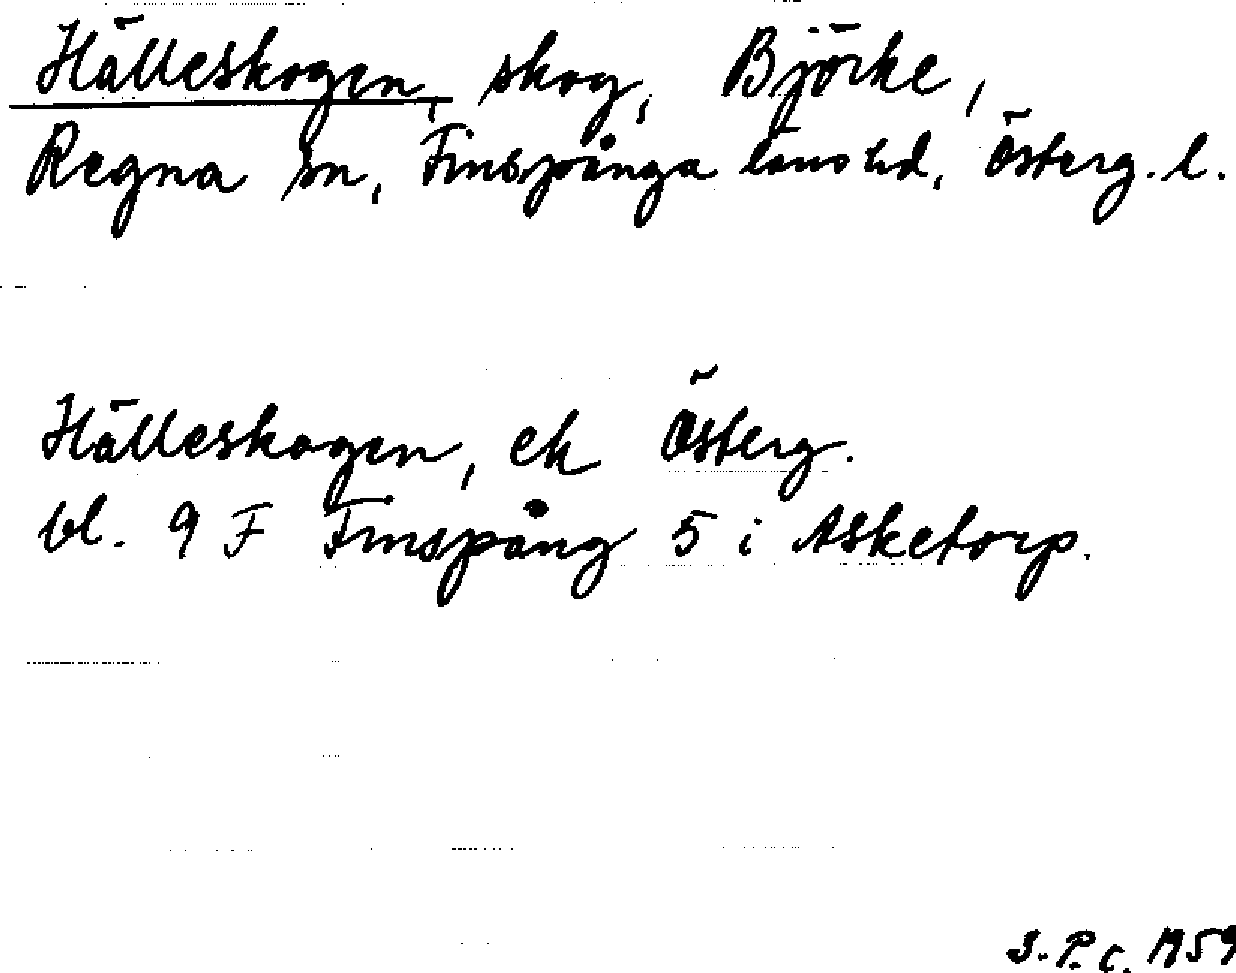 Hälleskogen, skog, Björke,
Regna sn, Finspånga läns hd, Österg. l.
Hälleskogen, ek Österg.
bl. 9 F Finspång 5 i Asketorp.
S.P.C. 1959